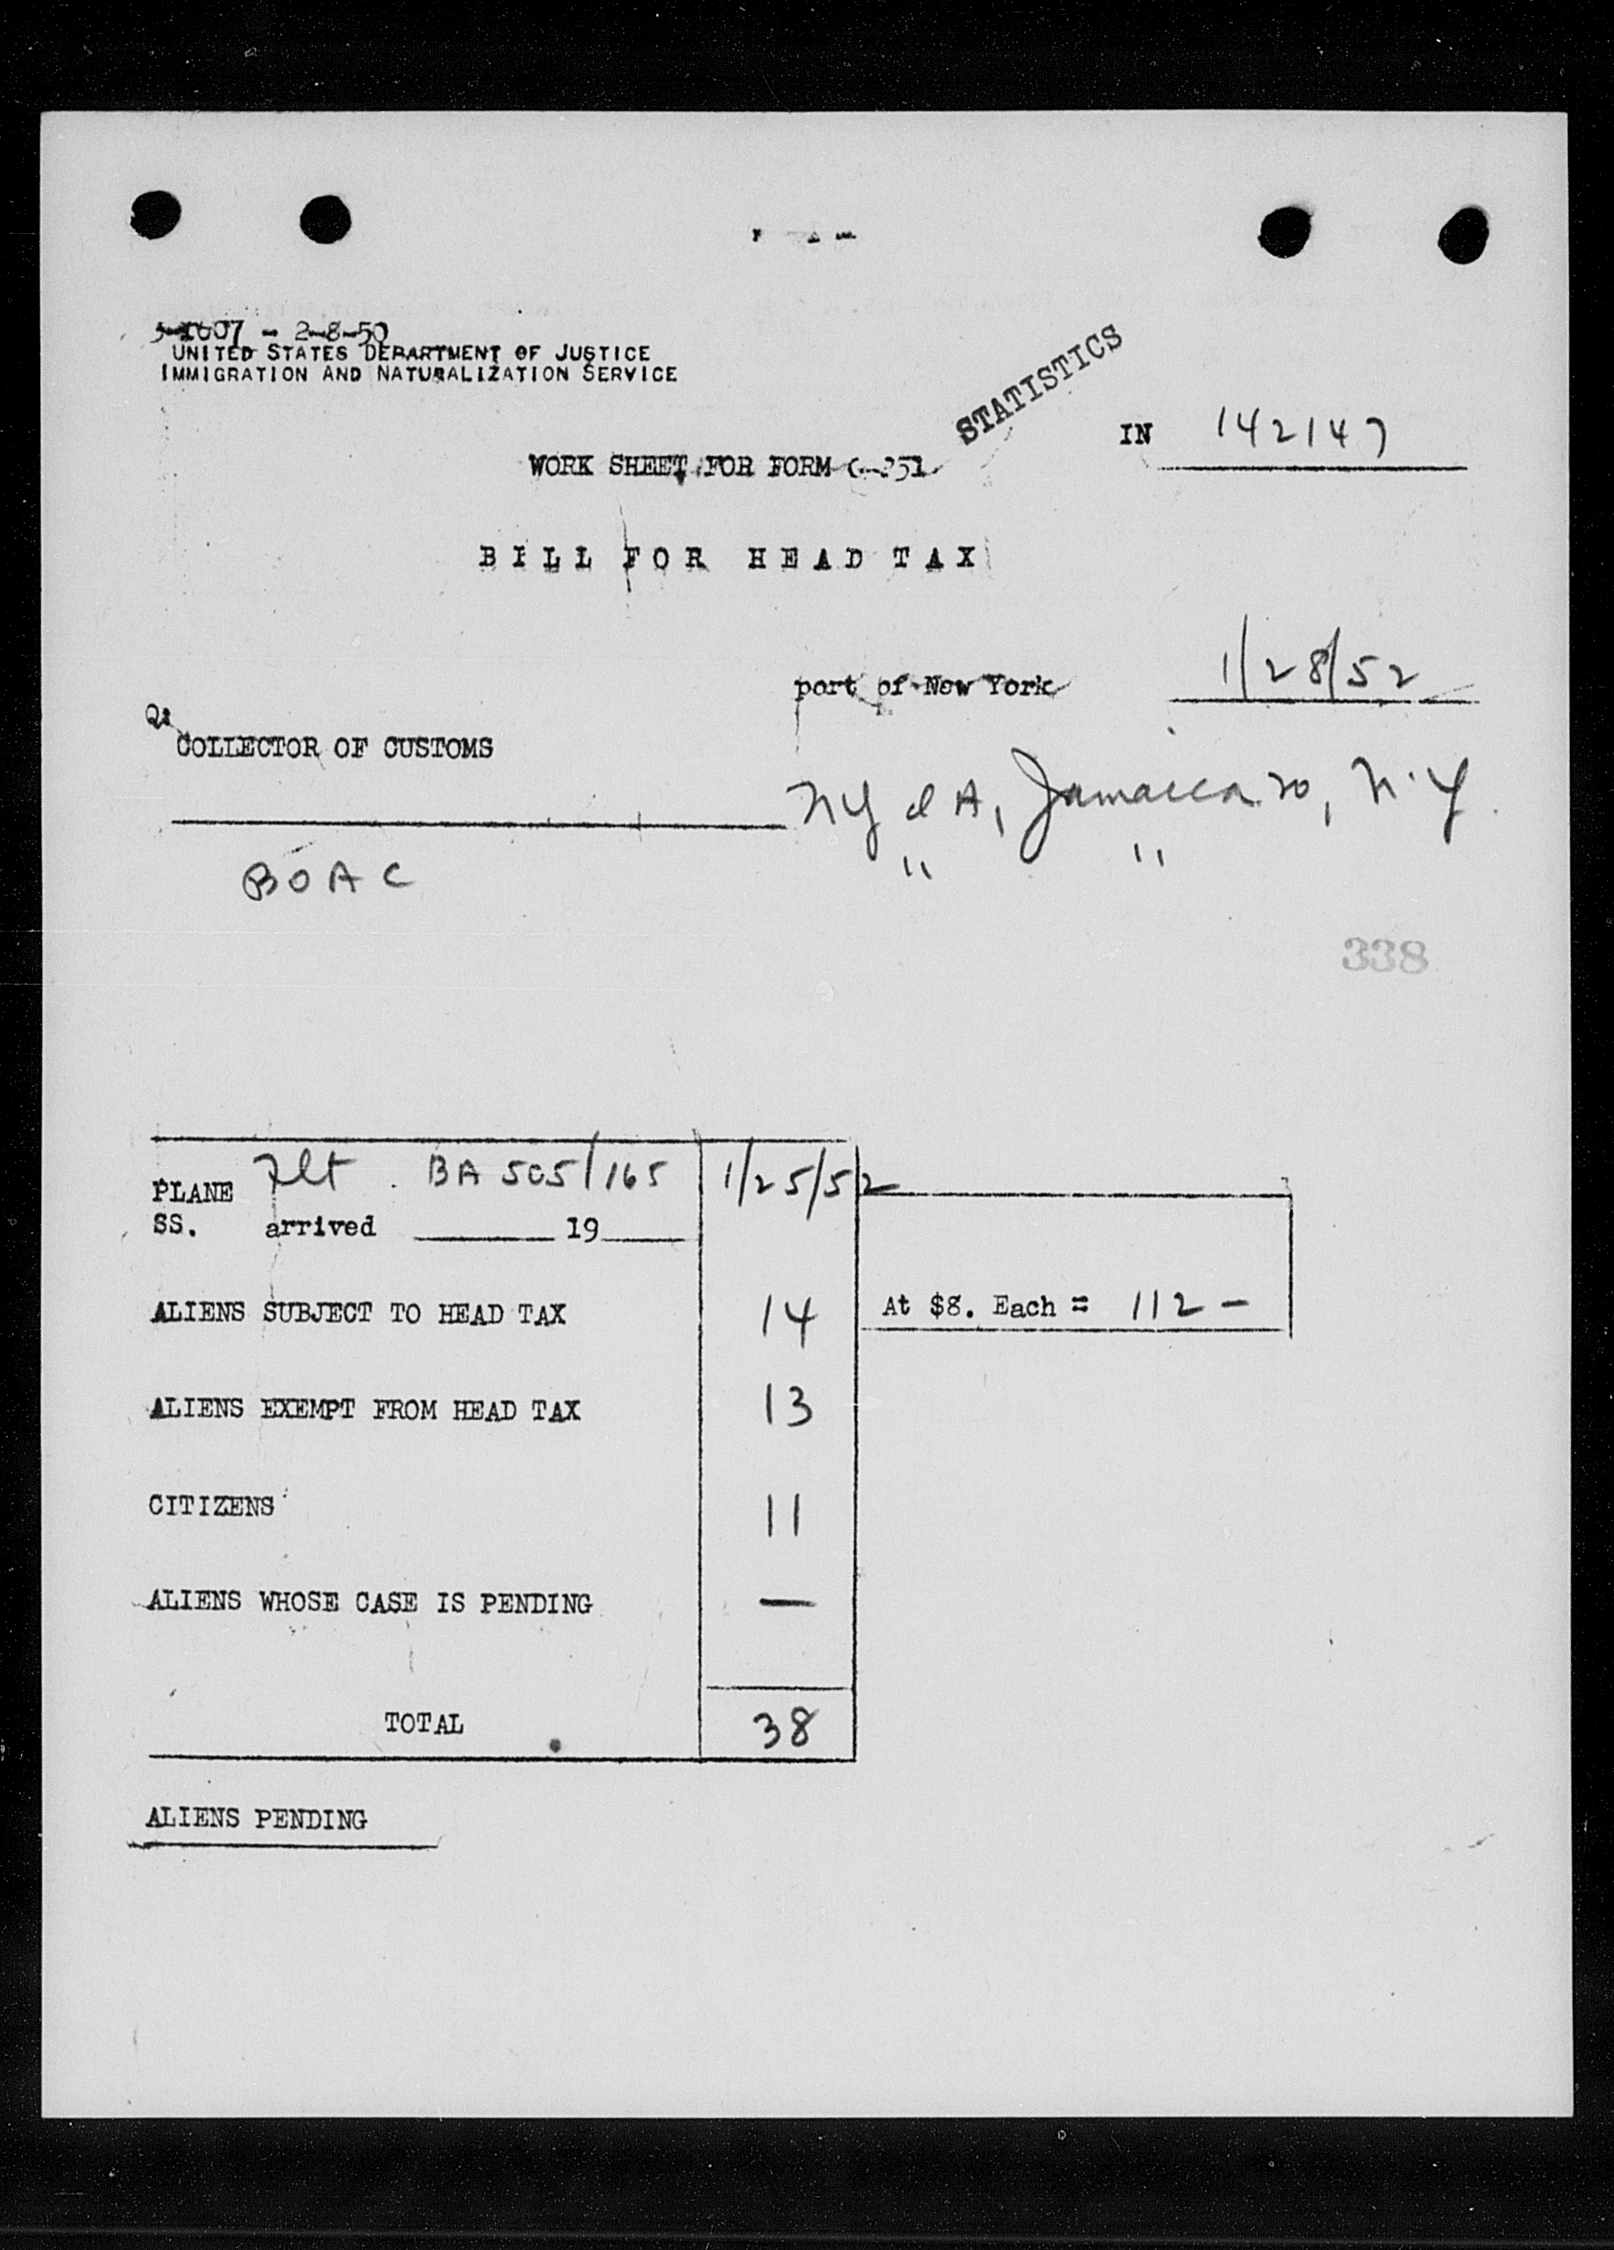 - 2-8-50
UNITED STATES DEPARTMENT OF JUSTICE
IMMIGRATION AND NATURALIZATION SERVICE
STATISTICS
IN 142147
WORK SHEET FOR FORM G-251
BILL FOR HEAD TAX
port of New York 1/28/52
COLLECTOR OF CUSTOMS
Jamaica 20, N.Y.
BOAC " "
338
PLANE Flt. BA 505/165 1/25/52
SS. arrived 19
ALIENS SUBJECT TO HEAD TAX 14 At $8. Each = 112 -
ALIENS EXEMPT FROM HEAD TAX 13
CITIZENS 11
ALIENS WHOSE CASE IS PENDING —
TOTAL 38
ALIENS PENDING